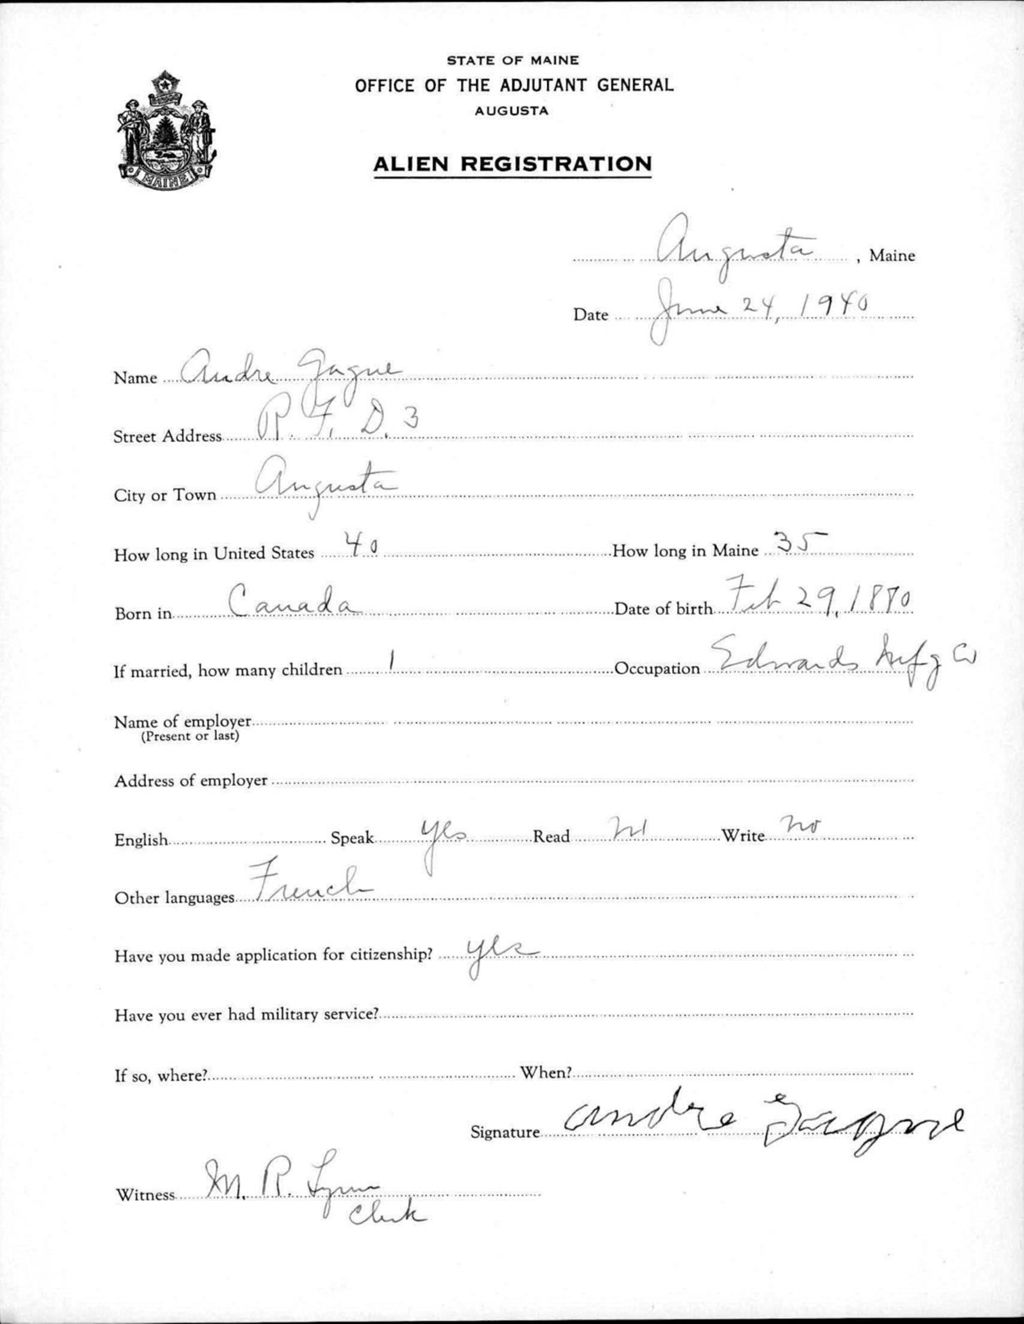 STATE OF MAINE
OFFICE OF THE ADJUTANT GENERAL
AUGUSTA
ALIEN REGISTRATION
MAINE
Augusta, Maine
Date June 24, 1940
Name Andre Gagne
Street Address R. F. D. 3
City or Town Augusta
How long in United States 40 How long in Maine 35
Born in Canada Date of birth Feb 29, 1880
If married, how many children 1 Occupation Edwards Mfg Co
Name of employer
(Present or last)
Address of employer
English Speak yes Read no Write no
Other languages French
Have you made application for citizenship? yes
Have you ever had military service?
If so, where? When?
Signature andre gagne
Witness M. R. Lynn
Clerk